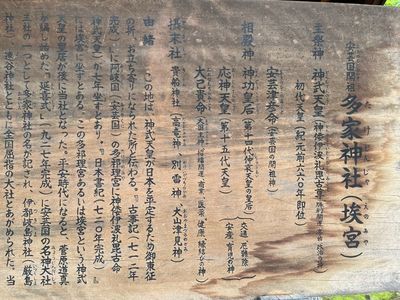 安芸国開祖 多家神社(埃宮)
たけじんじゃ えのみや
主祭神 神武天皇(神倭伊波礼毘古尊
初代天皇(紀元前六六〇年即位)
安芸津彦命(安芸国の開祖神)
相殿神 神功皇后(第十四代仲哀天皇の皇后)
応神天皇(第十五代天皇)
交通、厄難除
安産、育児の神
大己貴命(大国主神)(福徳開運、商業、医薬、健康、縁結びの神)
摂末社 貴船神社(高龗神)別雷神、大山津見神
由緒 この地は、神武天皇が日本を平定するため御東征
の折、お立ち寄りになられた所と伝わる。古事記(七一二年
完成)に阿岐国(安芸国)の多祁理宮に神倭伊波礼毘古命
(神武天皇)が七年坐すとあり、日本書紀(七二〇年完成)
には埃宮に坐すとある。この多祁理宮あるいは埃宮という神武
天皇の皇居が後に当社となった。平安時代になると、菅原道真
が編し始めた『延喜式』(九二七年完成)に安芸国の名神大社
三社の一つとして多家神社の名が記され、伊都伎島神社(厳島
神社)、速谷神社とともに全国屈指の大社とあがめられた。当